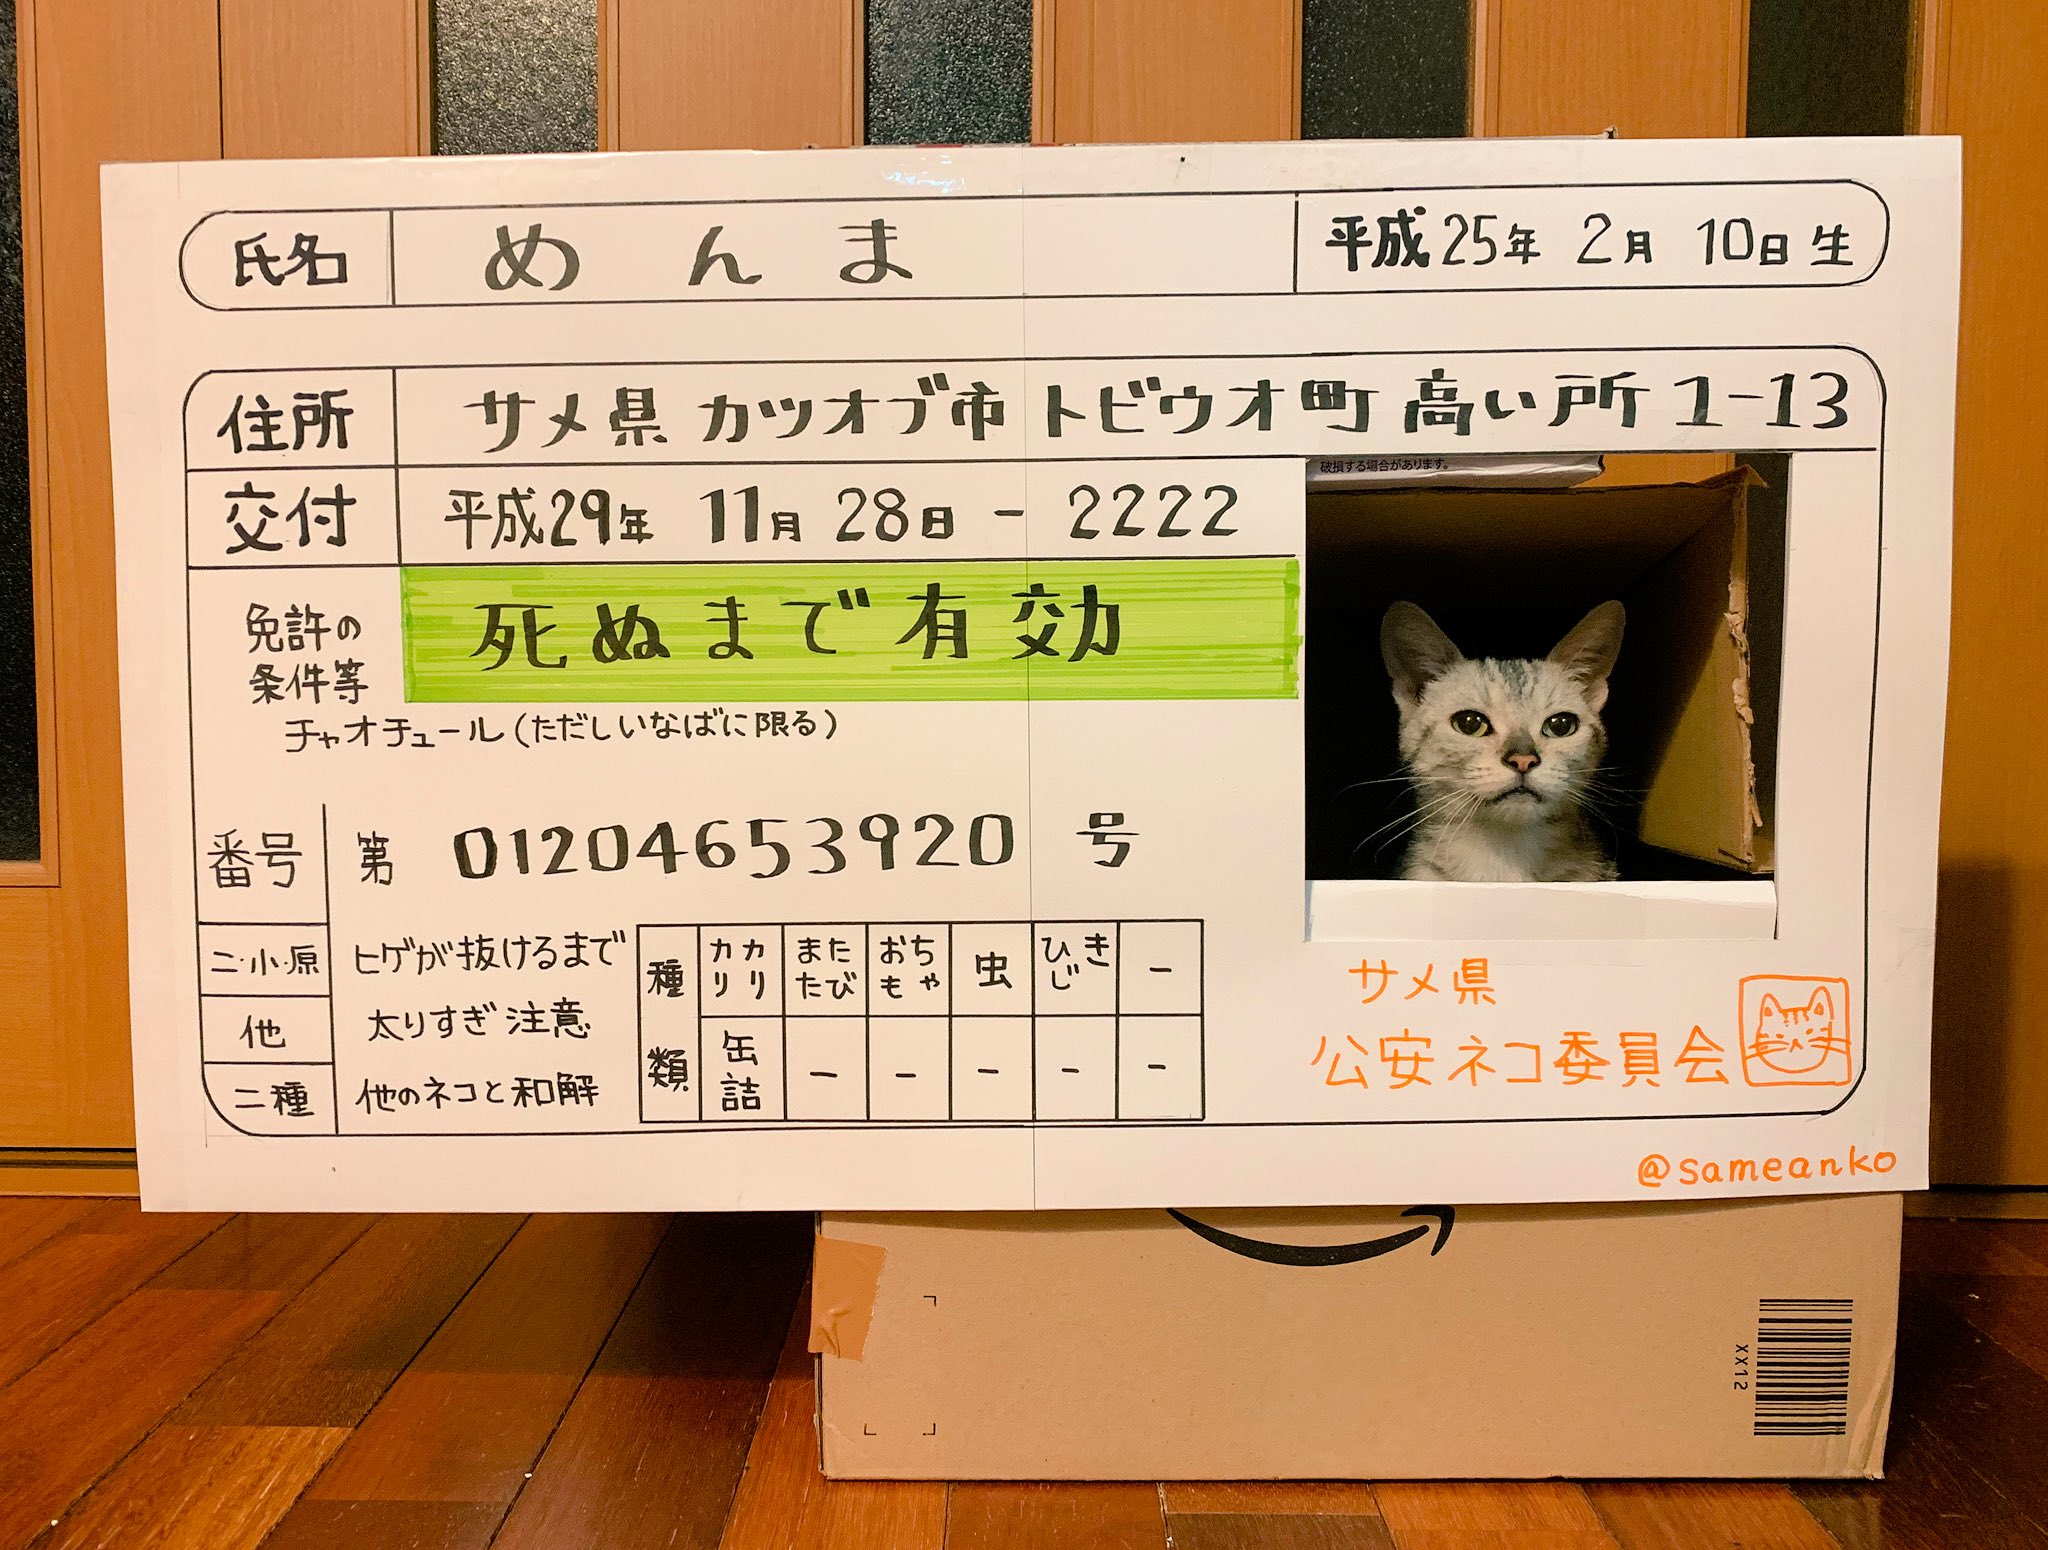 氏名 めんま 平成25年 2月 10日生
住所 サメ県 カツオブ市 トビウオ町 高い所 1-13
交付 平成29年 11月 28日 - 2222
破損する場合があります。
免許の
条件等
死ぬまで有効
チャオチュール(ただしいなばに限る)
番号 第 01204653920 号
二・小・原 ヒゲが抜けるまで
他 太りすぎ注意
二種 他のネコと和解
種類
カリカリ またたび おもちゃ 虫 ひじき -
缶詰 - - - - -
サメ県
公安ネコ委員会
@sameanko
XX12